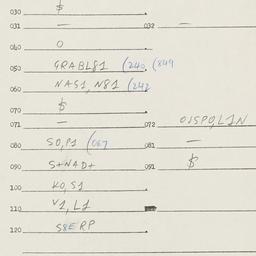 030 $
031 — 032 —
040 0
050 GRABL81 (240, (849
060 NAS1, N81 (242
070 $
071 — 072 OISPOL1N
080 SO,P1 (067 081 —
090 S+NAD+ 091 $
100 KO,S1
110 V1,L1
120 S8ERP